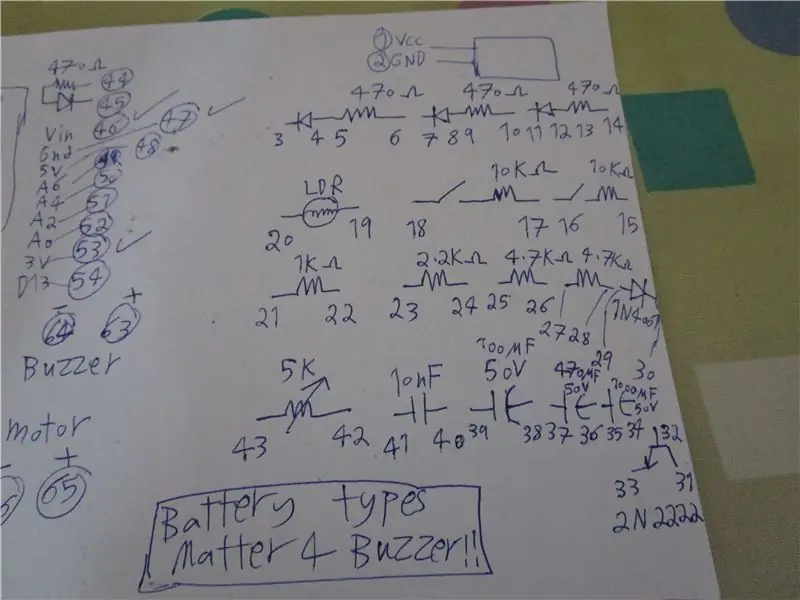 470Ω
44
45
Vin 46
47
Gnd
5V 48
A6
A4 50
A2 51
A0 52
3V 53
D13 54
- +
64 63
Buzzer
motor
- +
65
1 VCC
2 GND
470Ω 470Ω 470Ω
3 4 5 6 7 8 9 10 11 12 13 14
LDR 10KΩ 10KΩ
20 19 18 17 16 15
1KΩ 2.2KΩ 4.7KΩ 4.7KΩ
21 22 23 24 25 26 27 28 29 30
1N4007
5K 10nF 100MF 50V 470MF 50V 1000MF 50V
43 42 41 40 39 38 37 36 35 34
32
33 31
2N2222
Battery types
Matter 4 Buzzer!!